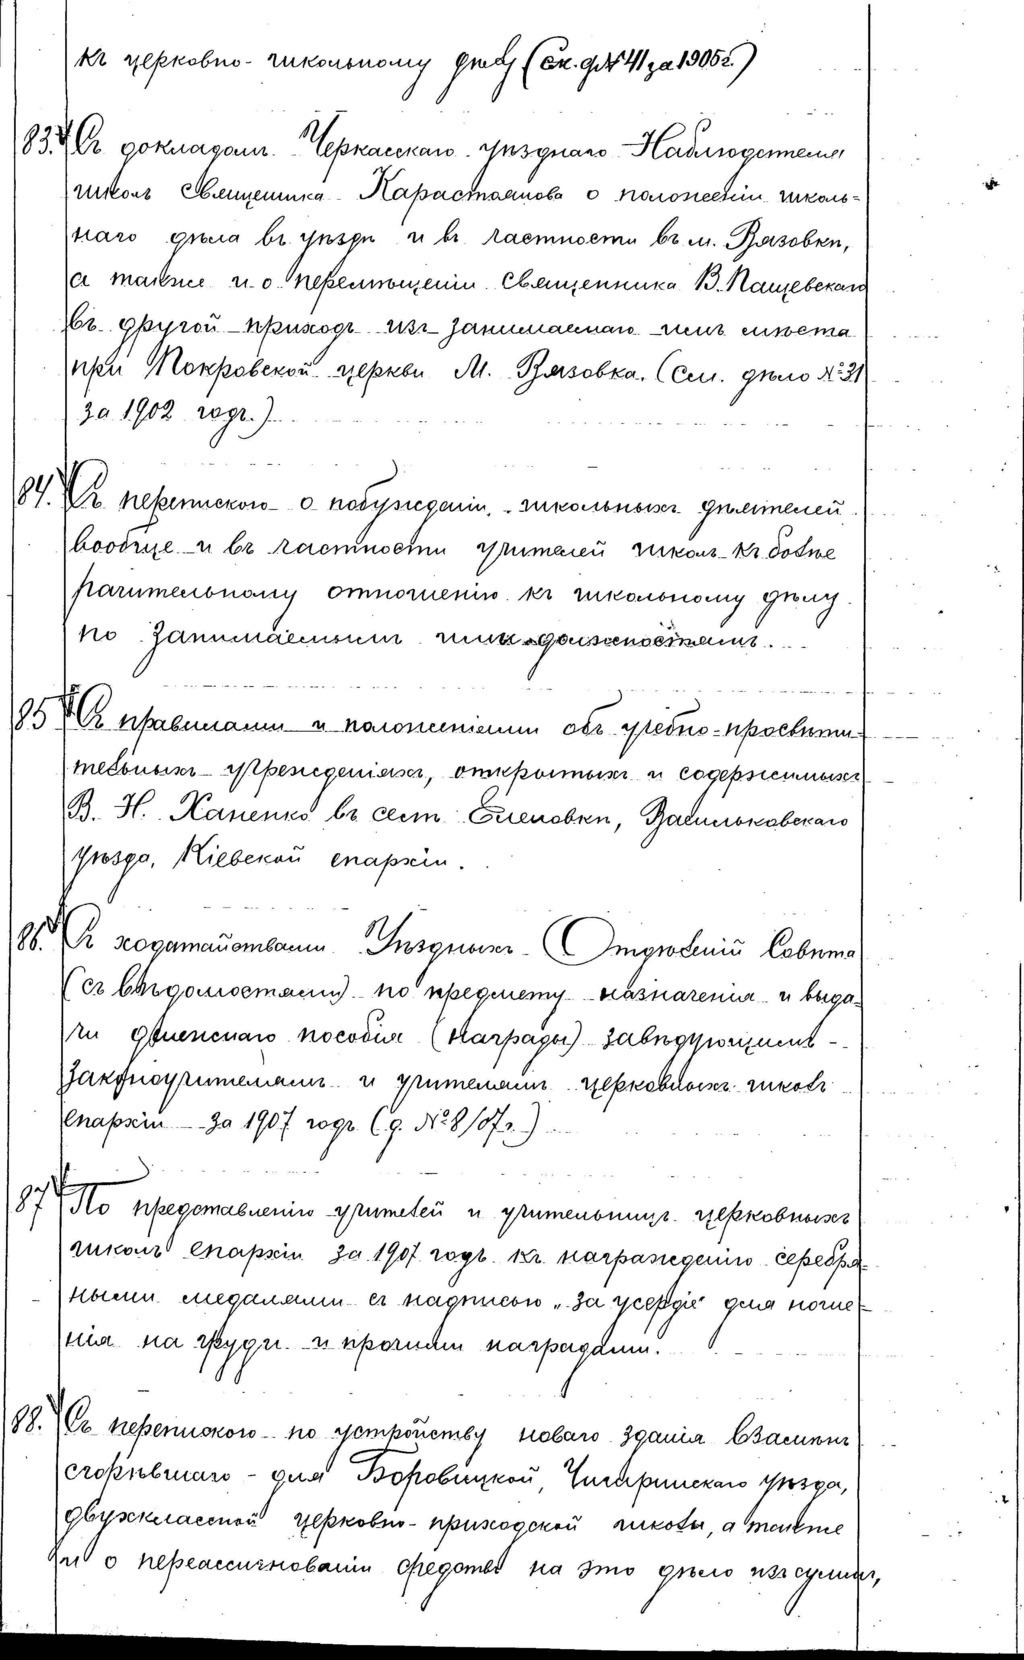 къ церковно-школьному дѣлу (см. д. № 41 за 1905 г.)
83. Съ докладомъ Черкасскаго уѣзднаго Наблюдателя
школъ священника Карастоянова о положеніи школь-
наго дѣла въ уѣздѣ и въ частности въ м. Вязовкѣ,
а также и о перемѣщеніи священника В. Пащевскаго
въ другой приходъ изъ занимаемаго имъ мѣста
при Покровской церкви М. Вязовка. (См. дѣло № 31
за 1902 годъ.)
84. Съ перепискою о побужденіи школьныхъ дѣятелей
вообще и въ частности учителей школъ къ болѣе
рачительному отношенію къ школьному дѣлу
по занимаемымъ ими должностямъ.
85 Съ правилами и положеніями объ учебно-просвѣти-
тельныхъ учрежденіяхъ, открытыхъ и содержимыхъ
В. Н. Ханенко въ селѣ Еленовкѣ, Васильковскаго
уѣзда, Кіевской епархіи.
86. Съ ходатайствами Уѣздныхъ Отдѣленій Совѣта
(съ вѣдомостями) по предмету назначенія и выда-
чи денежнаго пособія (награды) завѣдующимъ -
законоучителямъ и учителямъ церковныхъ школъ
епархіи за 1907 годъ (д. № 8/07 г.)
87 По представленію учителей и учительницъ церковныхъ
школъ епархіи за 1907 годъ къ награжденію серебря-
ными медалями съ надписью „за усердіе" для ноше-
нія на груди и прочими наградами.
88. Съ перепискою по устройству новаго зданія взамѣнъ
сгорѣвшаго - для Боровицкой, Чигиринскаго уѣзда,
двухклассной церковно-приходской школы, а также
и о переассигнованіи средствъ на это дѣло изъ суммъ,